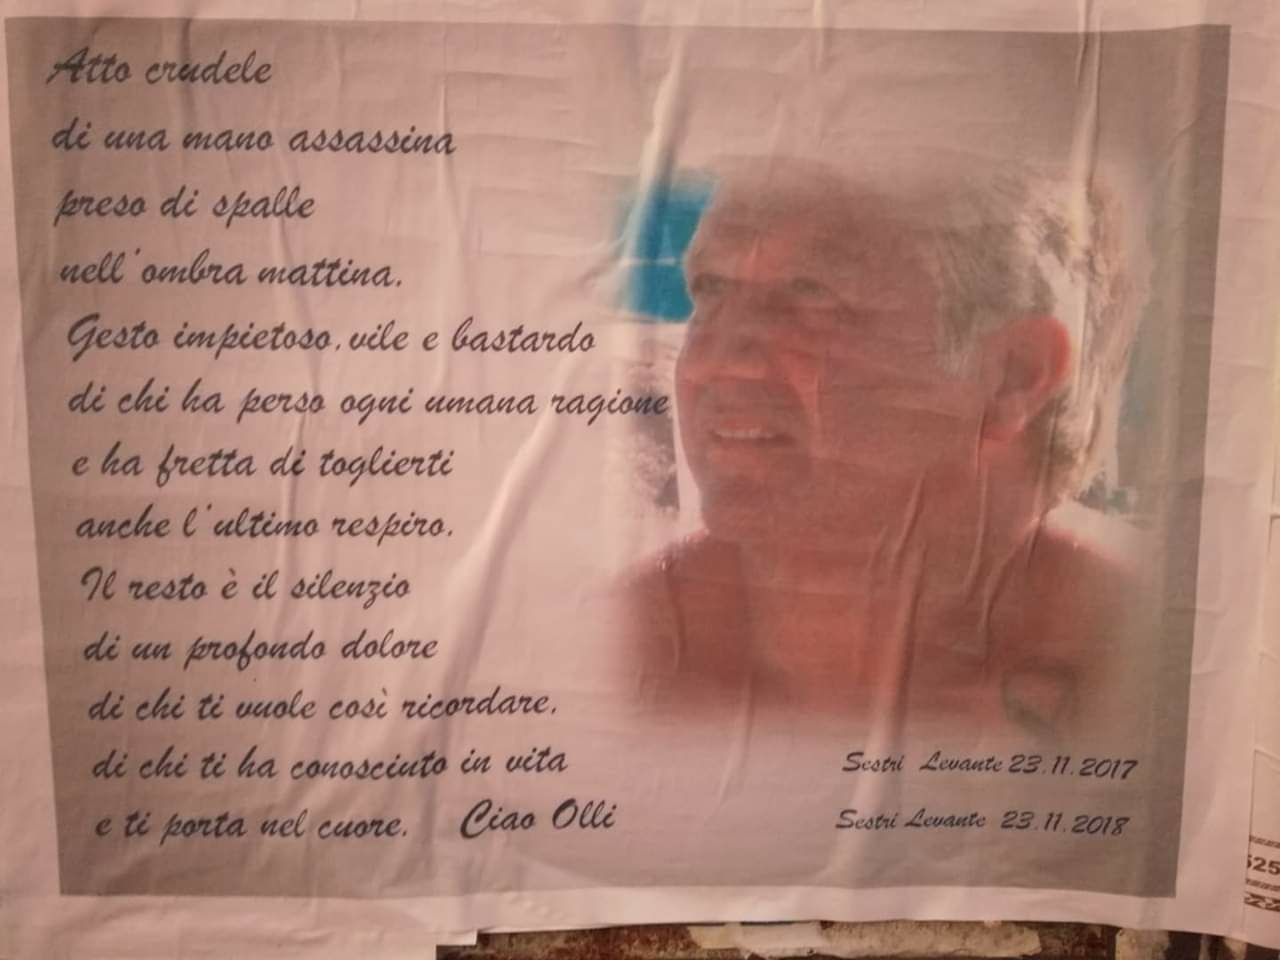 Atto crudele
di una mano assassina
preso di spalle
nell'ombra mattina.
Gesto impietoso, vile e bastardo
di chi ha perso ogni umana ragione
e ha fretta di toglierti
anche l'ultimo respiro.
Il resto è il silenzio
di un profondo dolore
di chi ti vuole così ricordare,
di chi ti ha conosciuto in vita
e ti porta nel cuore. Ciao Olli
Sestri Levante 23.11.2017
Sestri Levante 23.11.2018